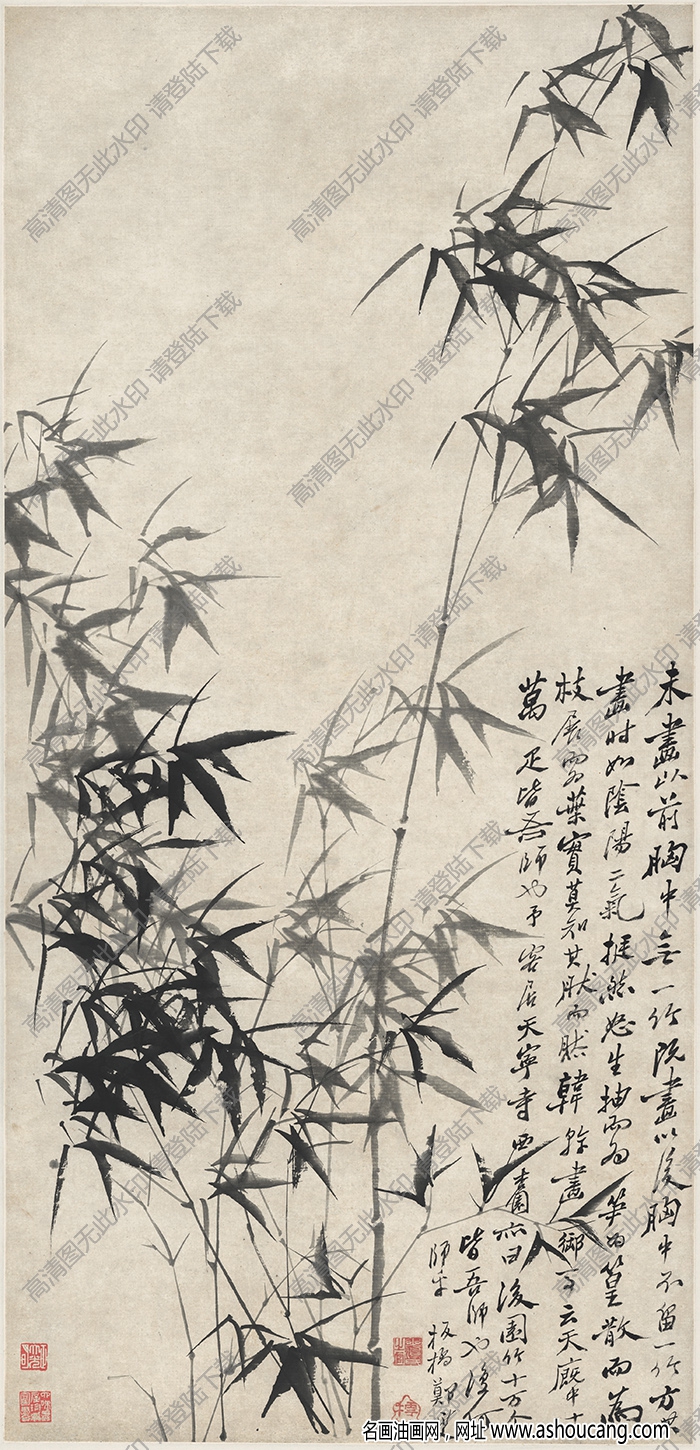 未畫以前胸中無一竹既畫以後胸中不留一竹方其
畫時如陰陽二氣挺然怒生抽而為笋為篁散而為
枝展而為葉實莫知其然而然韓幹畫御馬云天廄中十
萬匹皆吾師也予客居天寧寺西杏園亦曰後園竹十万个
皆吾師也復何
師乎 板橋鄭燮
高清图无此水印 请登陆下载
名画油画网，网址 www.ashoucang.com